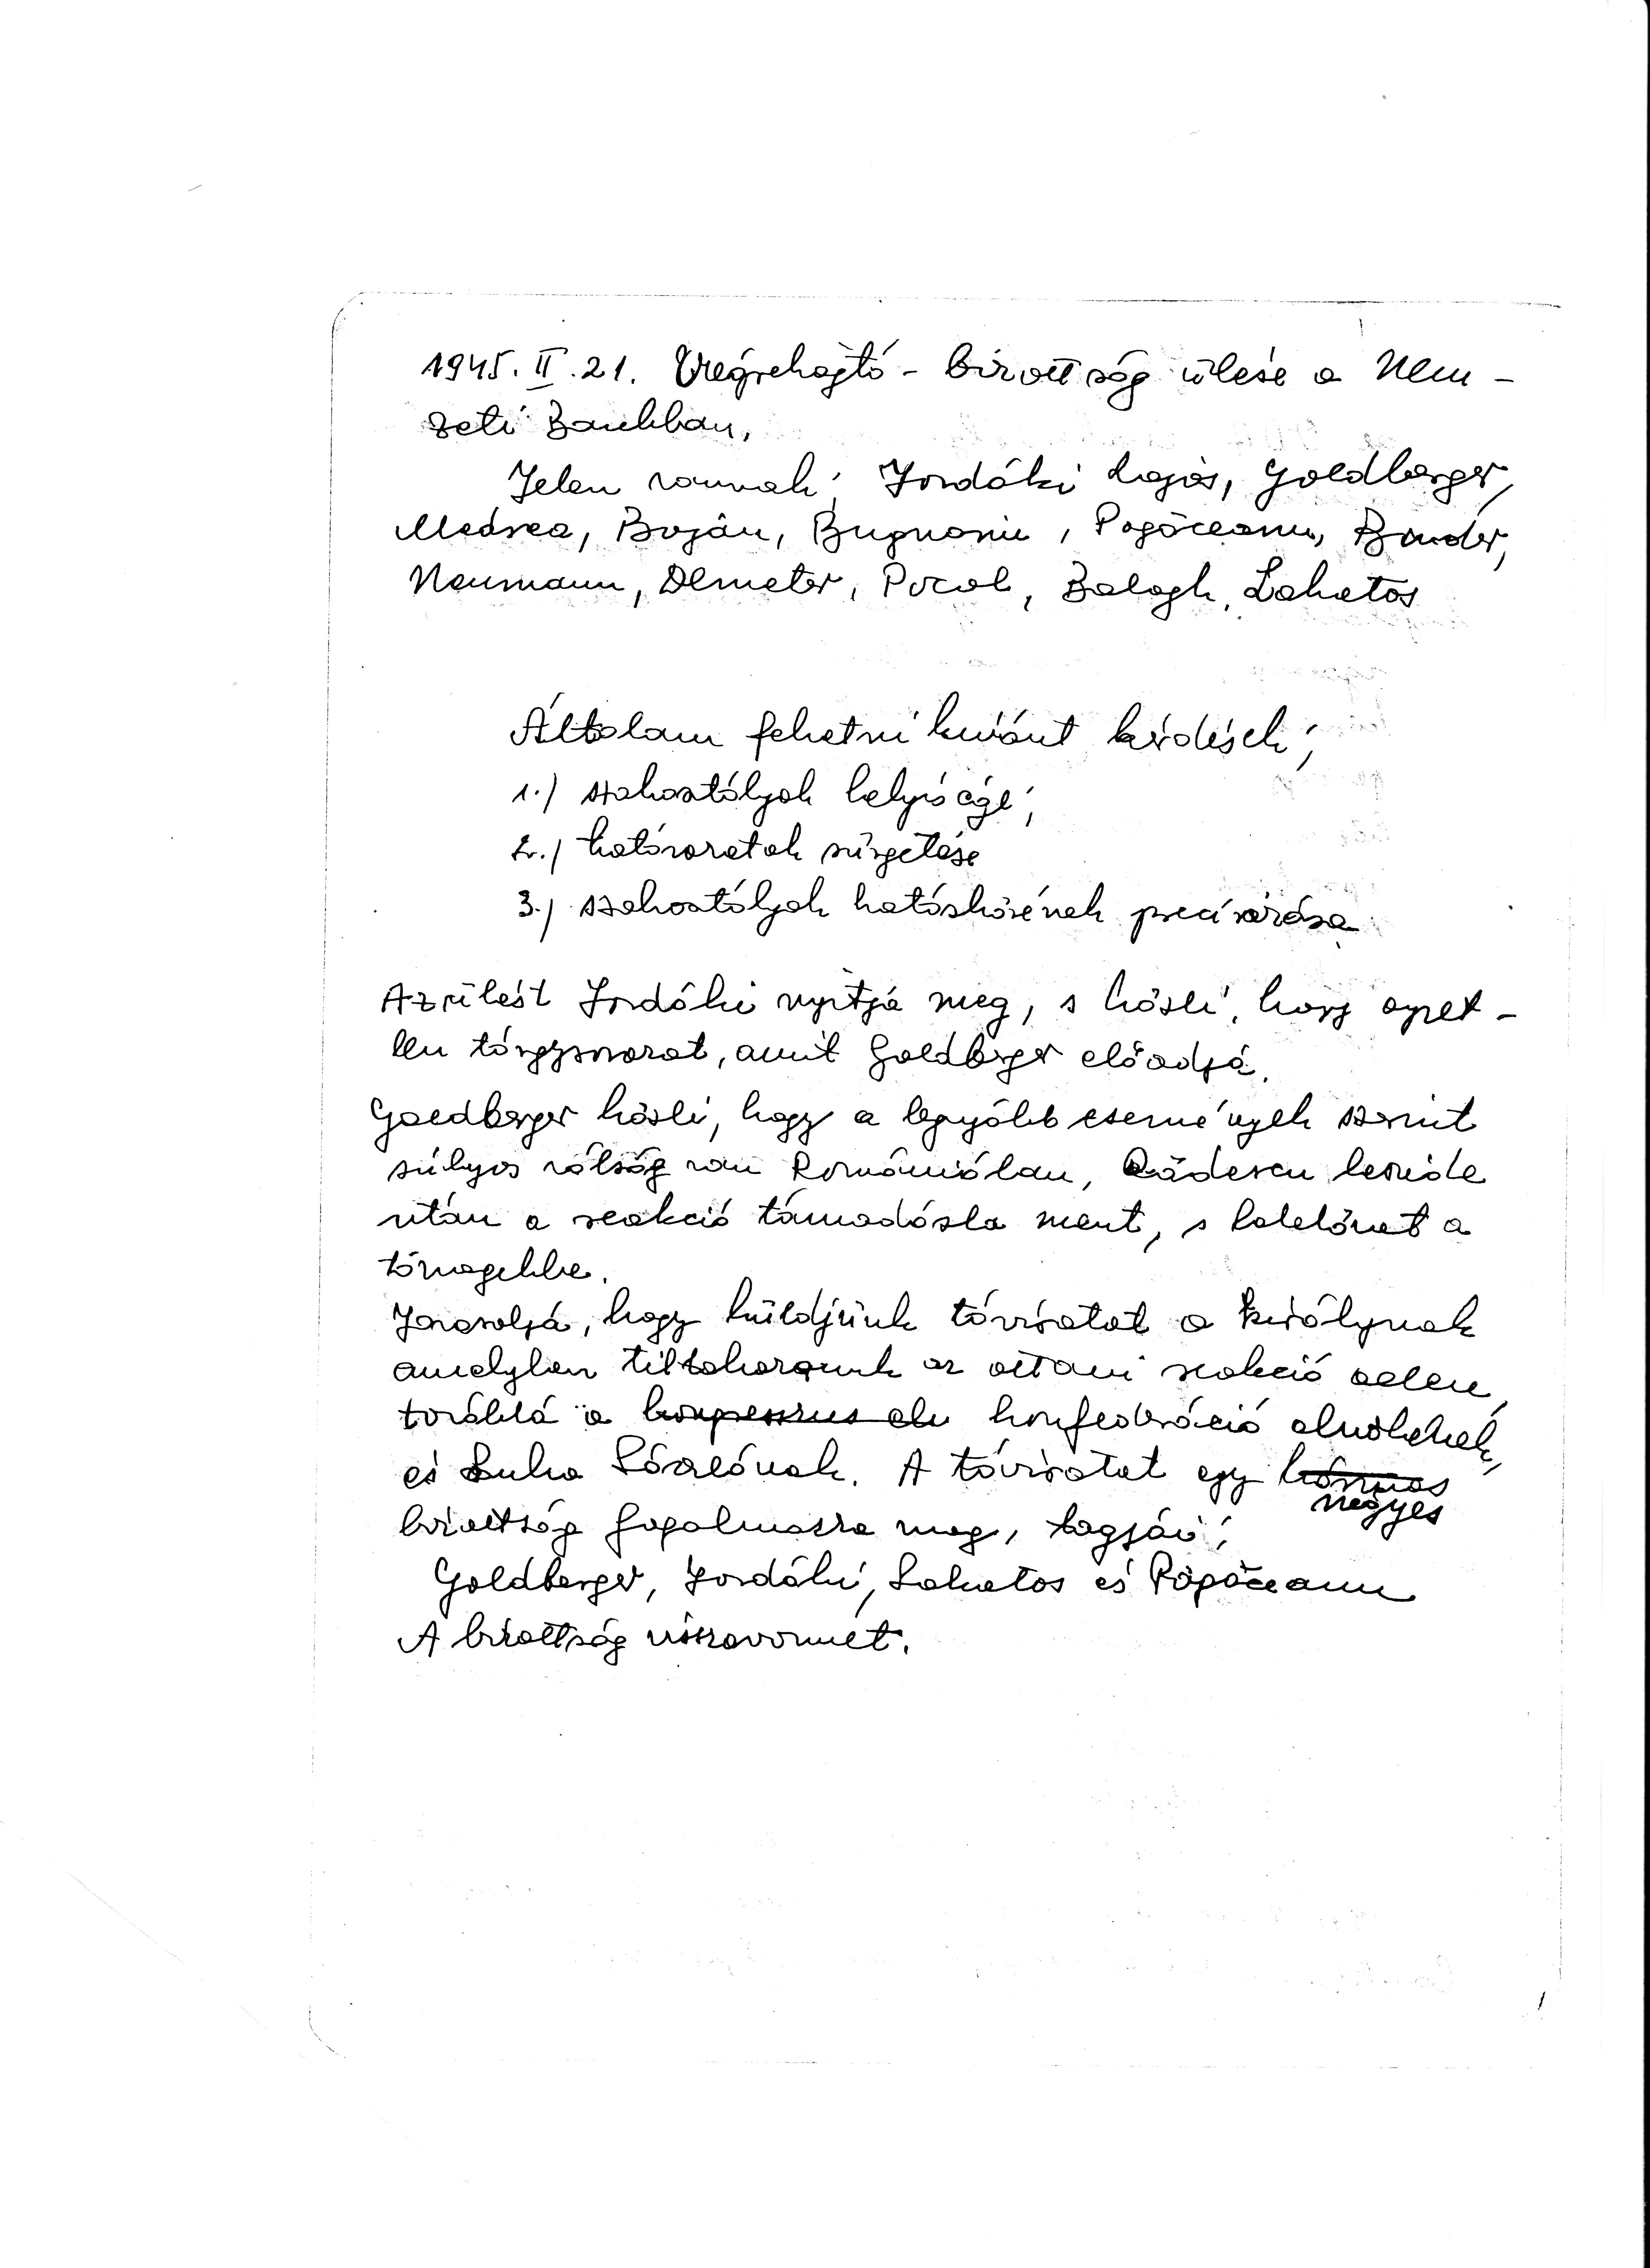 1945. II. 21. Végrehajtó - bizottság ülése a Nem -
zeti Bankban,
Jelen vannak: Jordáki Lajos, Goldberger,
Medrea, Boján, Bugnariu, Pogăceanu, Binder,
Neumann, Demeter, Pocol, Balogh, Lakatos
Általam feltetni kívánt kérdések;
1.) szakosztályok helyisége;
2.) határozatok sürgetése
3.) szakosztályok hatáskörének precizirása
Az ülést Jordáki nyitja meg, s közli, hogy egyet -
len tárgysorozat, amit Goldberger előadja.
Goldberger közli, hogy a legujabb események szerint
súlyos válság van Romániában, Rădescu beszéde
után a reakció támadásba ment, s belelövet a
tömegekbe.
Javasolja, hogy küldjünk táviratot a királynak
amelyben tiltakozunk az ottani reakció ellen,
továbbá a konfederáció elnökének,
és Luka Lászlónak. A táviratot egy hármas
négyes
bizottság fogalmazza meg, tagjai:
Goldberger, Jordáki, Lakatos és Pogăceanu
A bizottság visszavonult.